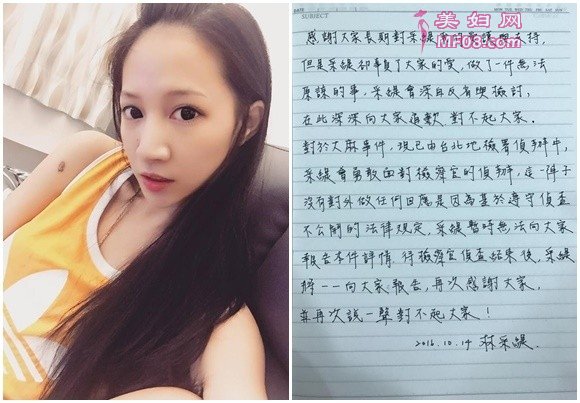 MON TUE WED THU FRI SAT SUN
SUBJECT
美妇网
MF08.com
感謝大家長期對采緹 支持,
但是采緹卻辜負了大家的愛，做了一件無法
原諒的事，采緹會深自反省與檢討，
在此深深向大家道歉，對不起大家。
對於大麻事件，現已由台北地檢署偵辦中，
采緹會勇敢面對檢察官的偵辦，這一陣子
沒有對外做任何回應是因為基於遵守偵查
不公開的法律規定，采緹暫時無法向大家
報告本件詳情，待檢察官偵查結束後，采緹
將一一向大家報告，再次感謝大家，
並再次說一聲對不起大家！
2016.10.14 林采緹.